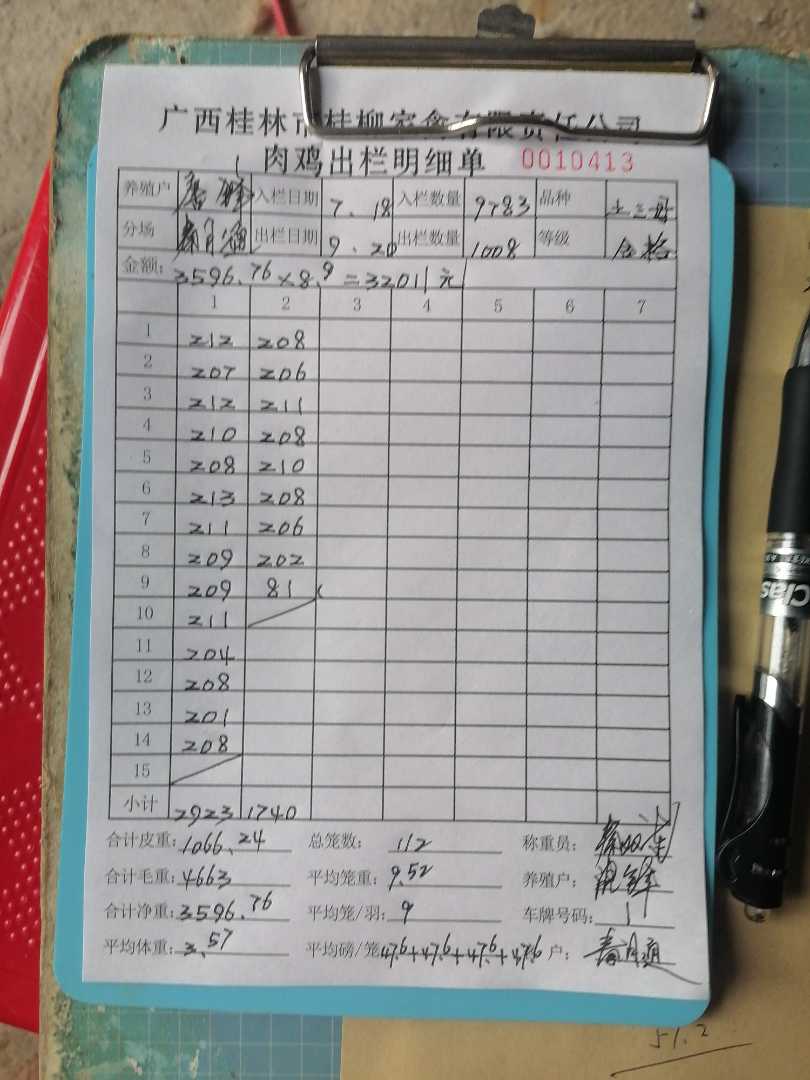 广西桂林市桂柳家禽有限责任公司
肉鸡出栏明细单 0010413
养殖户 入栏日期 7.18 入栏数量 9783 品种 土三母
分场 出栏日期 9.20 出栏数量 1008 等级 合格
金额: 3596.76×8.9=32011元
1 2 3 4 5 6 7
1 212 208
2 207 206
3 212 211
4 210 208
5 208 210
6 213 208
7 211 206
8 209 202
9 209 81
10 211
11 204
12 208
13 201
14 208
15
小计 2923 1740
合计皮重: 1066.24 总笼数: 112 称重员:
合计毛重: 4663 平均笼重: 9.52 养殖户:
合计净重: 3596.76 平均笼/羽: 9 车牌号码:
平均体重: 3.57 平均磅/笼 47.6+47.6+47.6+47.6 户:
51.2